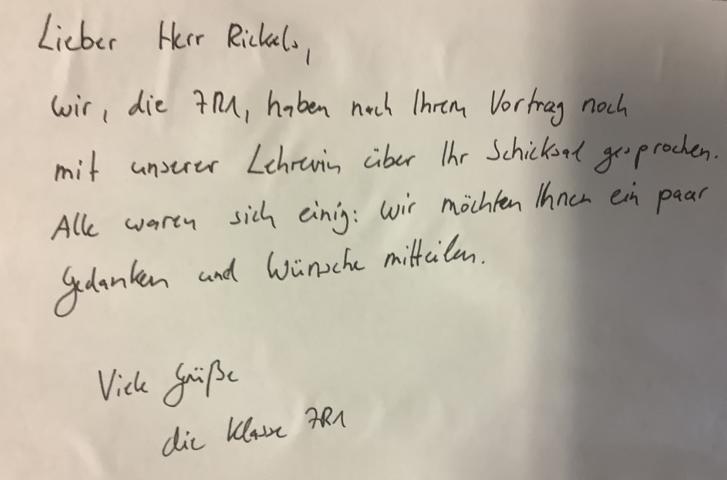 Lieber Herr Rickels,
wir, die 7R1, haben nach Ihrem Vortrag noch
mit unserer Lehrerin über Ihr Schicksal gesprochen.
Alle waren sich einig: wir möchten Ihnen ein paar
Gedanken und Wünsche mitteilen.
Viele Grüße
die Klasse 7R1